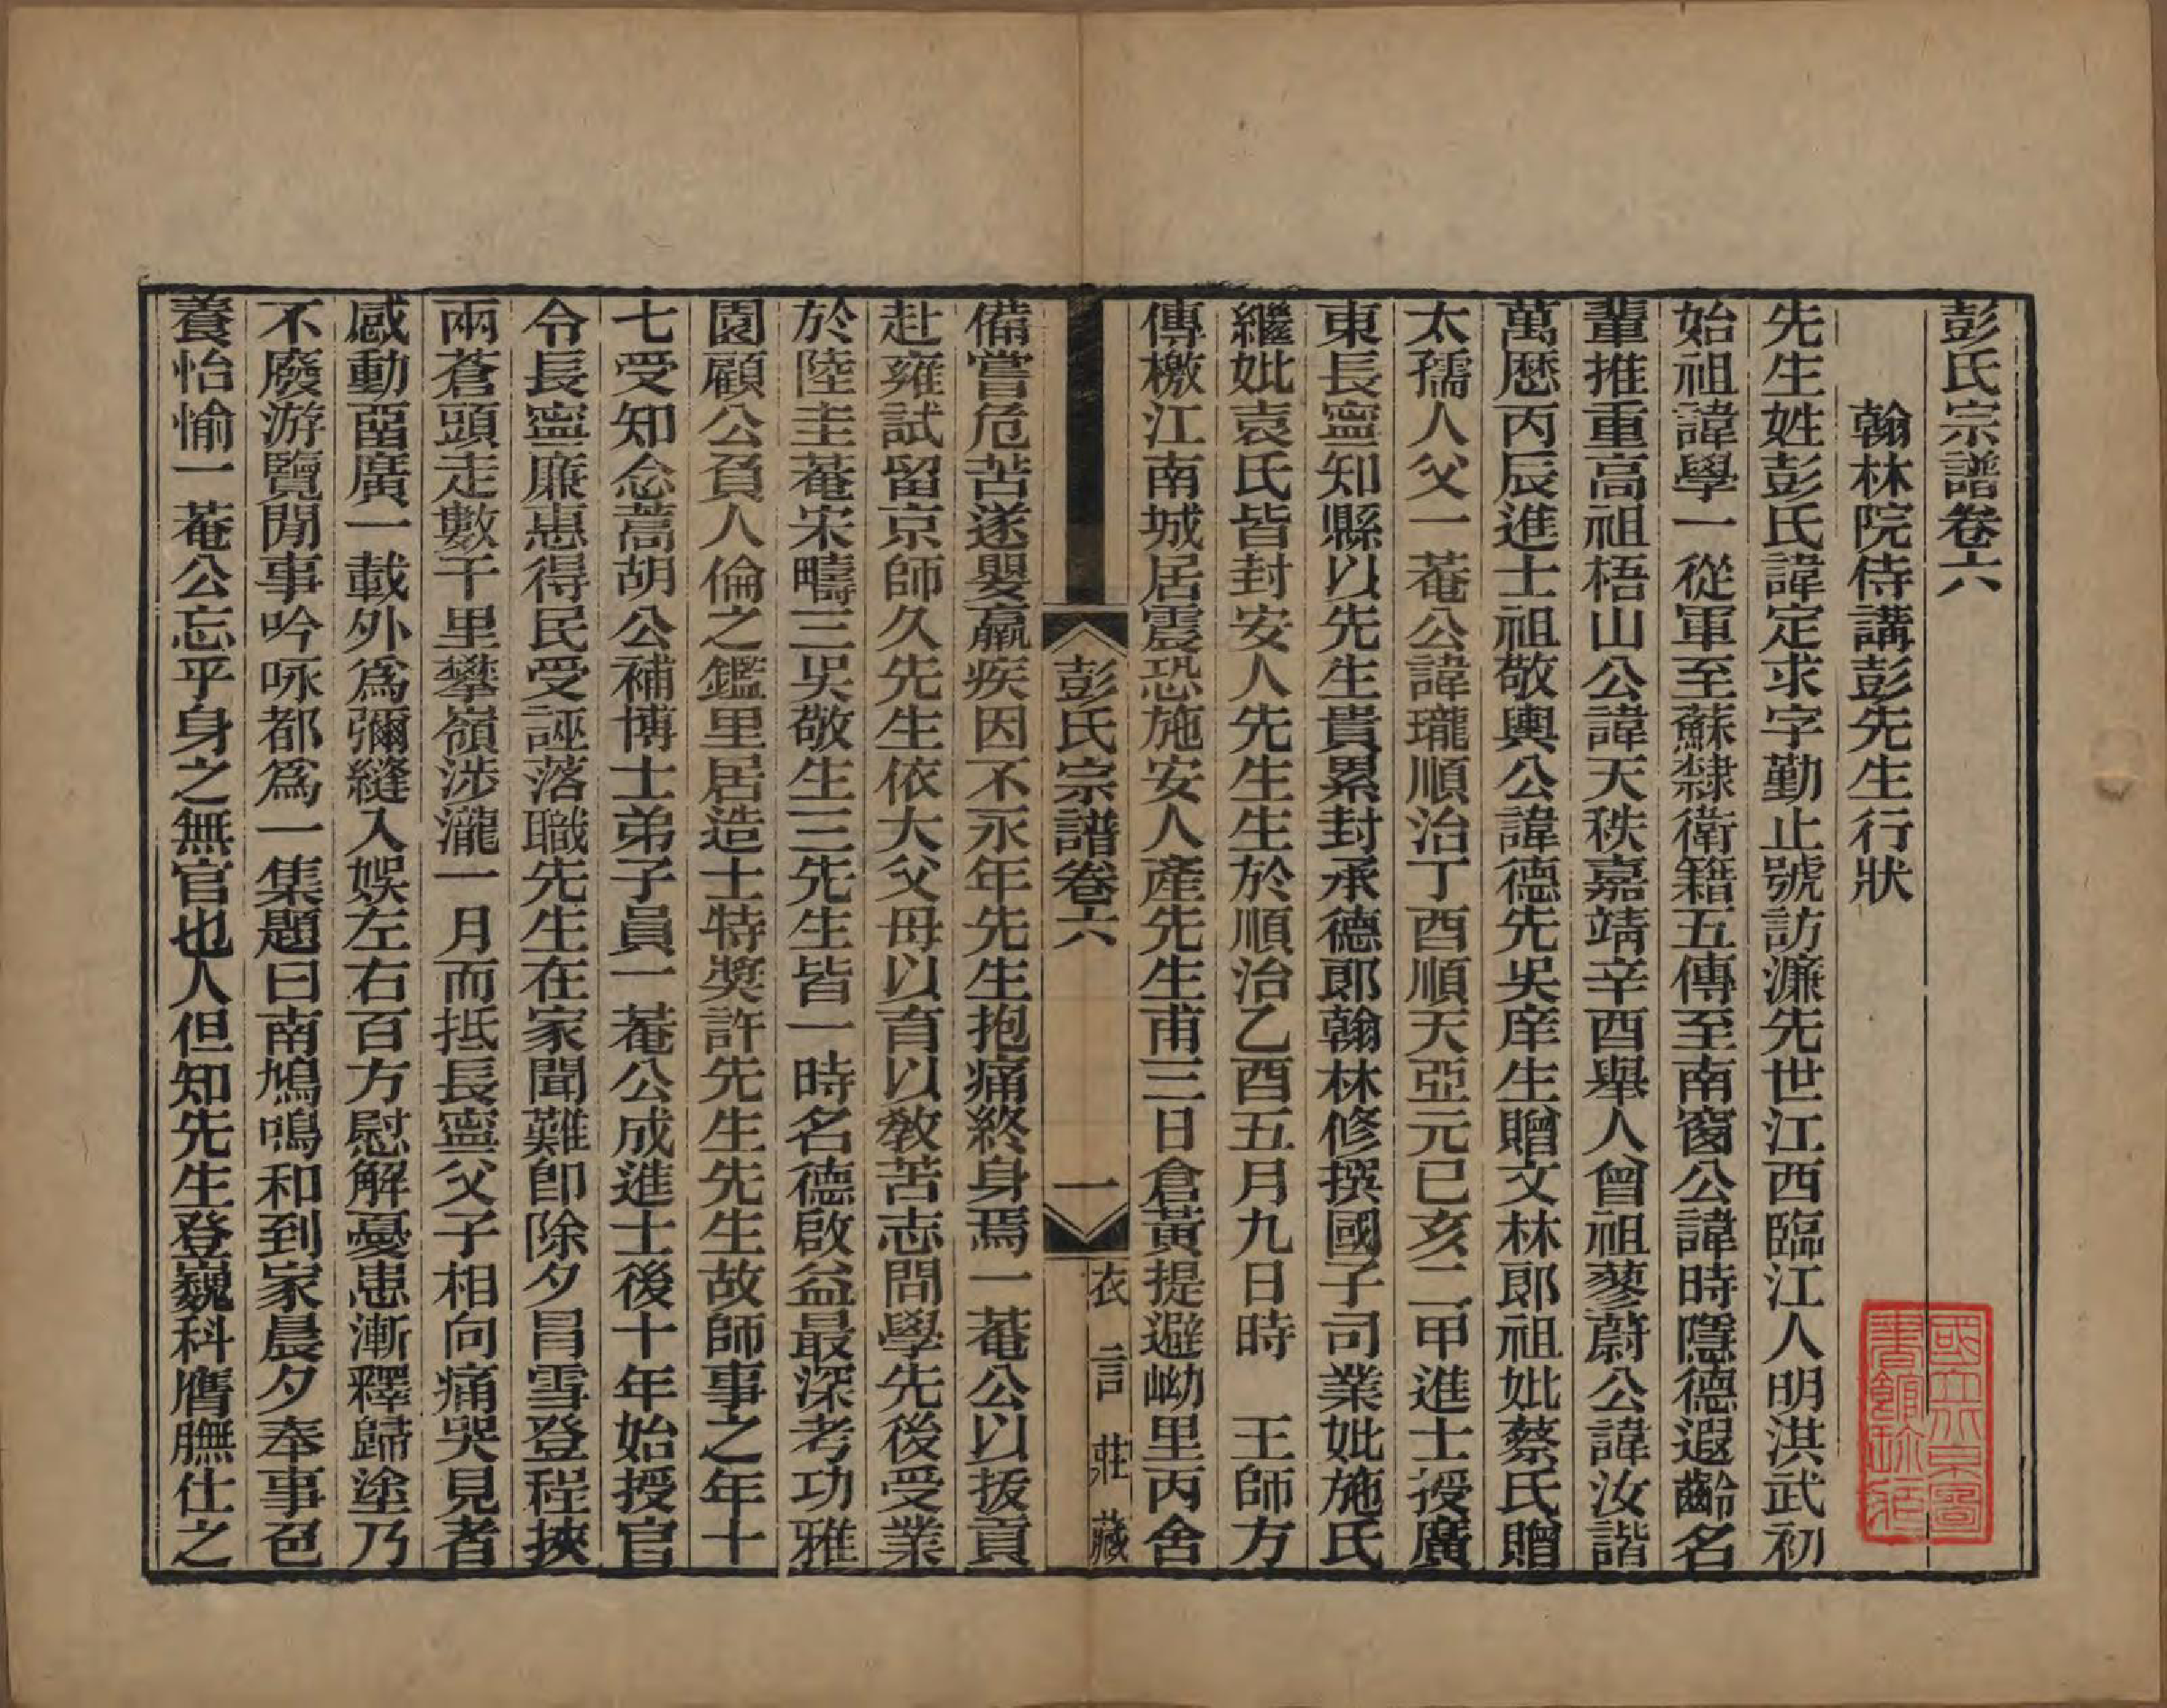 彭氏宗譜卷六
翰林院侍講彭先生行狀
先生姓彭氏諱定求字勤止號訪濂先世江西臨江人明洪武初
始祖諱學一從軍至蘇隸衛籍五傳至南窗公諱時隱德遐齡名
輩推重高祖梧山公諱天秩嘉靖辛酉舉人曾祖蓼蔚公諱汝諧
萬歴丙辰進士祖敬輿公諱德先吳庠生贈文林郎祖妣蔡氏贈
太孺人父一菴公諱瓏順治丁酉順天亞元己亥二甲進士授廣
東長寧知縣以先生貴累封承德郎翰林修撰國子司業妣施氏
繼妣袁氏皆封安人先生生於順治乙酉五月九日時　王師方
傳檄江南城居震恐施安人產先生甫三日倉黃提避岰里丙舍
彭氏宗譜卷六
一
衣言莊藏
備嘗危苦遂嬰羸疾因不永年先生抱痛終身焉一菴公以拔貢
赴雍試留京師久先生依大父母以育以敎苦志問學先後受業
於陸圭菴宋疇三吳敬生三先生皆一時名德啟益最深考功雅
園顧公負人倫之鑑里居造士特獎許先生先生故師事之年十
七受知念蒿胡公補博士弟子員一菴公成進士後十年始授官
令長寧廉惠得民受誣落職先生在家聞難卽除夕冒雪登程挾
兩蒼頭走數千里攀嶺涉瀧一月而抵長寧父子相向痛哭見者
感動畱廣一載外爲彌縫入娛左右百方慰解憂患漸釋歸塗乃
不廢游覽閒事吟咏都爲一集題曰南鳩鳴和到家晨夕奉事色
養怡愉一菴公忘乎身之無官也人但知先生登巍科膺膴仕之
國立北平圖
書館珍藏